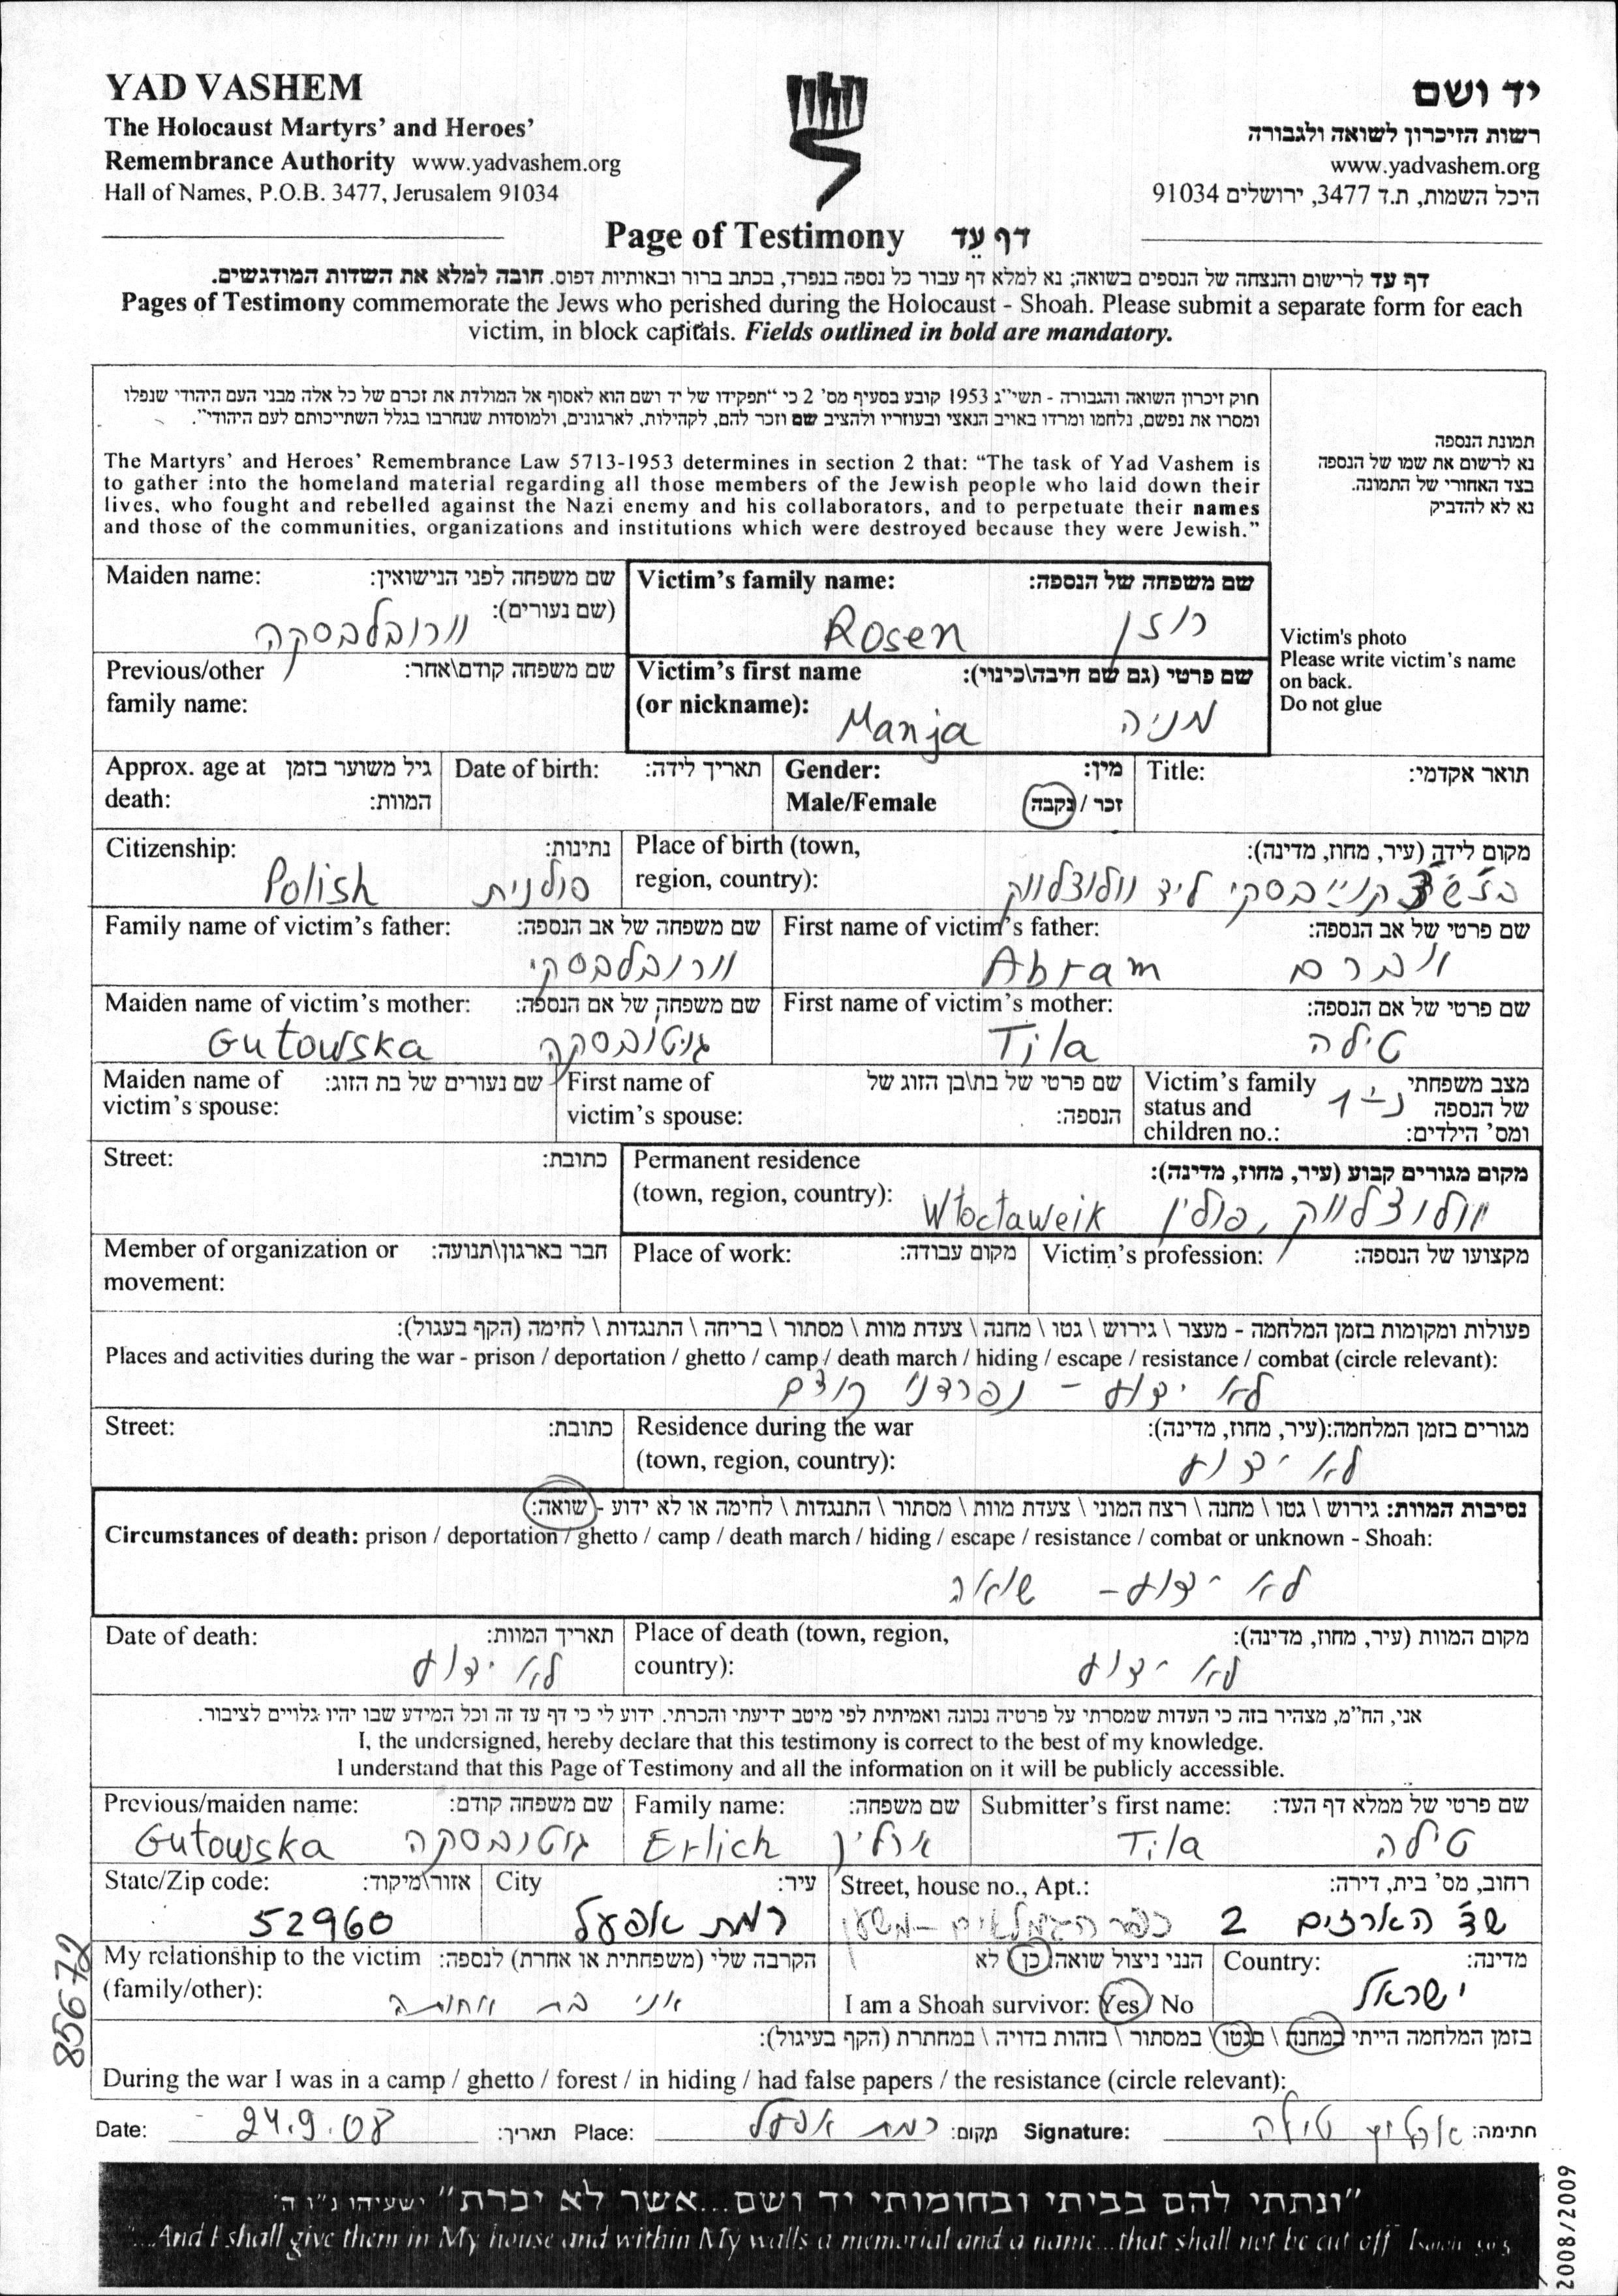 YAD VASHEM
The Holocaust Martyrs' and Heroes'
Remembrance Authority www.yadvashem.org
Hall of Names, P.O.B. 3477, Jerusalem 91034
יד ושם
רשות הזיכרון לשואה ולגבורה
www.yadvashem.org
היכל השמות, ת.ד 3477, ירושלים 91034
Page of Testimony דף עֵד
דף עד לרישום והנצחה של הנספים בשואה; נא למלא דף עבור כל נספה בנפרד, בכתב ברור ובאותיות דפוס. חובה למלא את השדות המודגשים.
Pages of Testimony commemorate the Jews who perished during the Holocaust - Shoah. Please submit a separate form for each
victim, in block capitals. Fields outlined in bold are mandatory.
חוק זיכרון השואה והגבורה - תשי"ג 1953 קובע בסעיף מס' 2 כי "תפקידו של יד ושם הוא לאסוף אל המולדת את זכרם של כל אלה מבני העם היהודי שנפלו
ומסרו את נפשם, נלחמו ומרדו באויב הנאצי ובעוזריו ולהציב שם וזכר להם, לקהילות, לארגונים, ולמוסדות שנחרבו בגלל השתייכותם לעם היהודי".
The Martyrs' and Heroes' Remembrance Law 5713-1953 determines in section 2 that: "The task of Yad Vashem is
to gather into the homeland material regarding all those members of the Jewish people who laid down their
lives, who fought and rebelled against the Nazi enemy and his collaborators, and to perpetuate their names
and those of the communities, organizations and institutions which were destroyed because they were Jewish."
תמונת הנספה
נא לרשום את שמו של הנספה
בצד האחורי של התמונה.
נא לא להדביק
Victim's photo
Please write victim's name
on back.
Do not glue
Maiden name: שם משפחה לפני הנישואין:
(שם נעורים):
וורובלבסקה
Victim's family name: שם משפחה של הנספה:
Rosen רוזן
Previous/other שם משפחה קודם\אחר:
family name:
Victim's first name שם פרטי (גם שם חיבה\כינוי):
(or nickname):
Manja מניה
Approx. age at גיל משוער בזמן
death: המוות:
Date of birth: תאריך לידה:
Gender: מין:
Male/Female זכר / נקבה
Title: תואר אקדמי:
Citizenship: נתינות:
Polish פולנית
Place of birth (town, מקום לידה (עיר, מחוז, מדינה):
region, country):
ליד וולוצלווק
Family name of victim's father: שם משפחה של אב הנספה:
וורובלבסקי
First name of victim's father: שם פרטי של אב הנספה:
Abram אברם
Maiden name of victim's mother: שם משפחה של אם הנספה:
Gutowska גוטובסקה
First name of victim's mother: שם פרטי של אם הנספה:
Tila טילה
Maiden name of שם נעורים של בת הזוג:
victim's spouse:
First name of שם פרטי של בת\בן הזוג של
victim's spouse: הנספה:
Victim's family מצב משפחתי
status and של הנספה
children no.: ומס' הילדים:
נ-1
Street: כתובת:
Permanent residence מקום מגורים קבוע (עיר, מחוז, מדינה):
(town, region, country):
Włocławeik וולוצלווק, פולין
Member of organization or חבר בארגון\תנועה:
movement:
Place of work: מקום עבודה:
Victim's profession: מקצועו של הנספה:
פעולות ומקומות בזמן המלחמה - מעצר \ גירוש \ גטו \ מחנה \ צעדת מוות \ מסתור \ בריחה \ התנגדות \ לחימה (הקף בעגול):
Places and activities during the war - prison / deportation / ghetto / camp / death march / hiding / escape / resistance / combat (circle relevant):
לא ידוע - נפרדנו קודם
Street: כתובת:
Residence during the war מגורים בזמן המלחמה:(עיר, מחוז, מדינה):
(town, region, country):
לא ידוע
נסיבות המוות: גירוש \ גטו \ מחנה \ רצח המוני \ צעדת מוות \ מסתור \ התנגדות \ לחימה או לא ידוע - שואה:
Circumstances of death: prison / deportation / ghetto / camp / death march / hiding / escape / resistance / combat or unknown - Shoah:
לא ידוע - שואה
Date of death: תאריך המוות:
לא ידוע
Place of death (town, region, מקום המוות (עיר, מחוז, מדינה):
country):
לא ידוע
אני, הח"מ, מצהיר בזה כי העדות שמסרתי על פרטיה נכונה ואמיתית לפי מיטב ידיעתי והכרתי. ידוע לי כי דף עד זה וכל המידע שבו יהיו גלויים לציבור.
I, the undersigned, hereby declare that this testimony is correct to the best of my knowledge.
I understand that this Page of Testimony and all the information on it will be publicly accessible.
Previous/maiden name: שם משפחה קודם:
Gutowska גוטובסקה
Family name: שם משפחה:
Erlich ארליך
Submitter's first name: שם פרטי של ממלא דף העד:
Tila טילה
State/Zip code: אזור\מיקוד:
52960
City עיר:
רמת אפעל
Street, house no., Apt.: רחוב, מס' בית, דירה:
שד' הארזים 2 כפר הגמלאים - משען
My relationship to the victim הקרבה שלי (משפחתית או אחרת) לנספה:
(family/other):
אני בת אחותה
הנני ניצול שואה: כן לא
I am a Shoah survivor: Yes / No
Country: מדינה:
ישראל
בזמן המלחמה הייתי במחנה \ בגטו \ במסתור \ בזהות בדויה \ במחתרת (הקף בעיגול):
During the war I was in a camp / ghetto / forest / in hiding / had false papers / the resistance (circle relevant):
Date: 24.9.08 תאריך: Place: רמת אפעל מקום: Signature: ארליך טילה חתימה:
"ונתתי להם בביתי ובחומותי יד ושם...אשר לא יכרת" ישעיהו נ"ו ה'
"...And I shall give them in My house and within My walls a memorial and a name...that shall not be cut off" Isaiah 56:5
85672
2008/2009